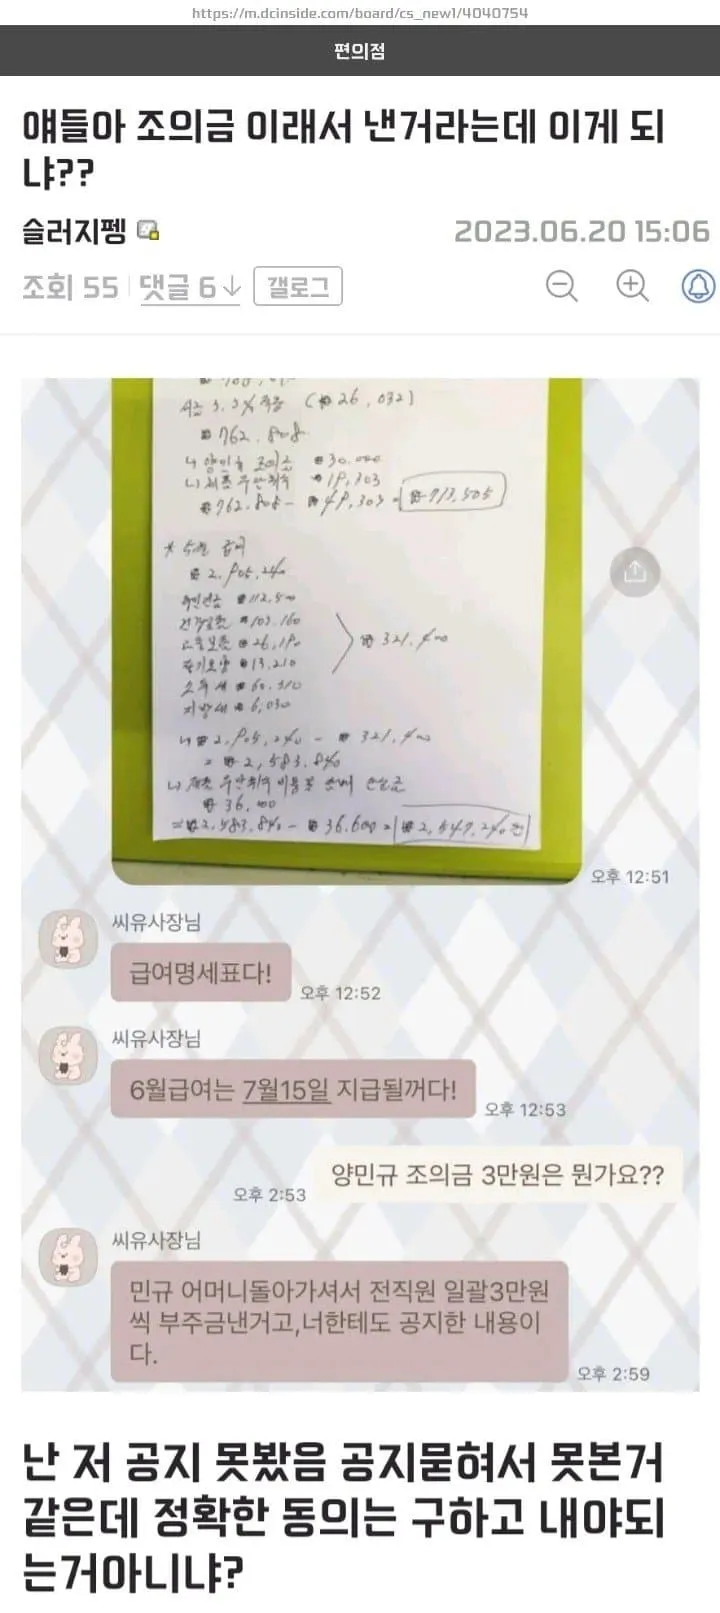 https://m.dcinside.com/board/cs_new1/4040754
편의점
얘들아 조의금 이래서 낸거라는데 이게 되
냐??
슬러지펭
2023.06.20 15:06
조회 55 댓글 6↓ 갤로그
3.3% (₩26,032)
₩762.808
조의금 ₩30.000
₩19,303
₩762.808 - ₩49,303 = ₩713,505
급여
₩2,905,240
₩112,500
₩103,160
고용보험 ₩26,190
₩13,210
₩321,400
소득세 ₩60,310
지방세 ₩6,030
₩2,905,240 - ₩321,400
= ₩2,583,840
₩36,600
= ₩2,583,840 - ₩36,600 = ₩2,547,240원
오후 12:51
씨유사장님
급여명세표다!
오후 12:52
씨유사장님
6월급여는 7월15일 지급될꺼다!
오후 12:53
양민규 조의금 3만원은 뭔가요??
오후 2:53
씨유사장님
민규 어머니돌아가셔서 전직원 일괄3만원
씩 부주금낸거고,너한테도 공지한 내용이
다.
오후 2:59
난 저 공지 못봤음 공지묻혀서 못본거
같은데 정확한 동의는 구하고 내야되
는거아니냐?